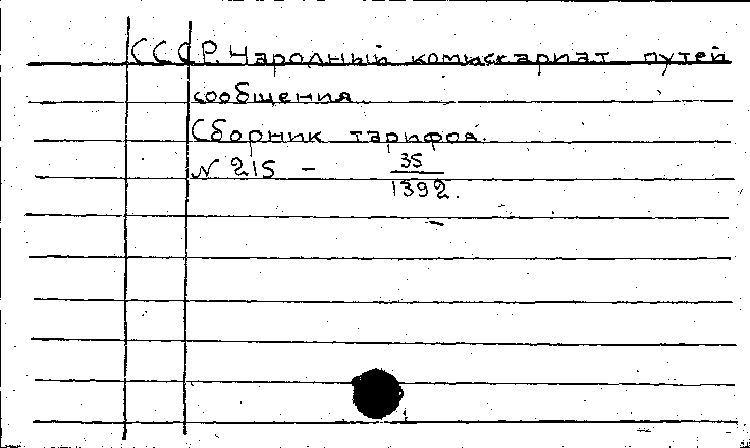 СССР. Народный комиссариат путей
сообщения.
Сборник тарифов.
N 215 - 35/1392.